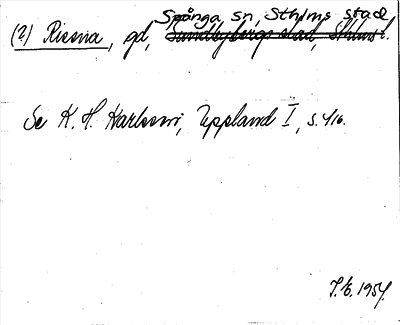 Spånga sn, Sthlms stad
(2) Rissna, gd, Sundbybergs stad, Sthlms l.
Se K. H. Karlsson, Uppland I, s. 416.
1954.